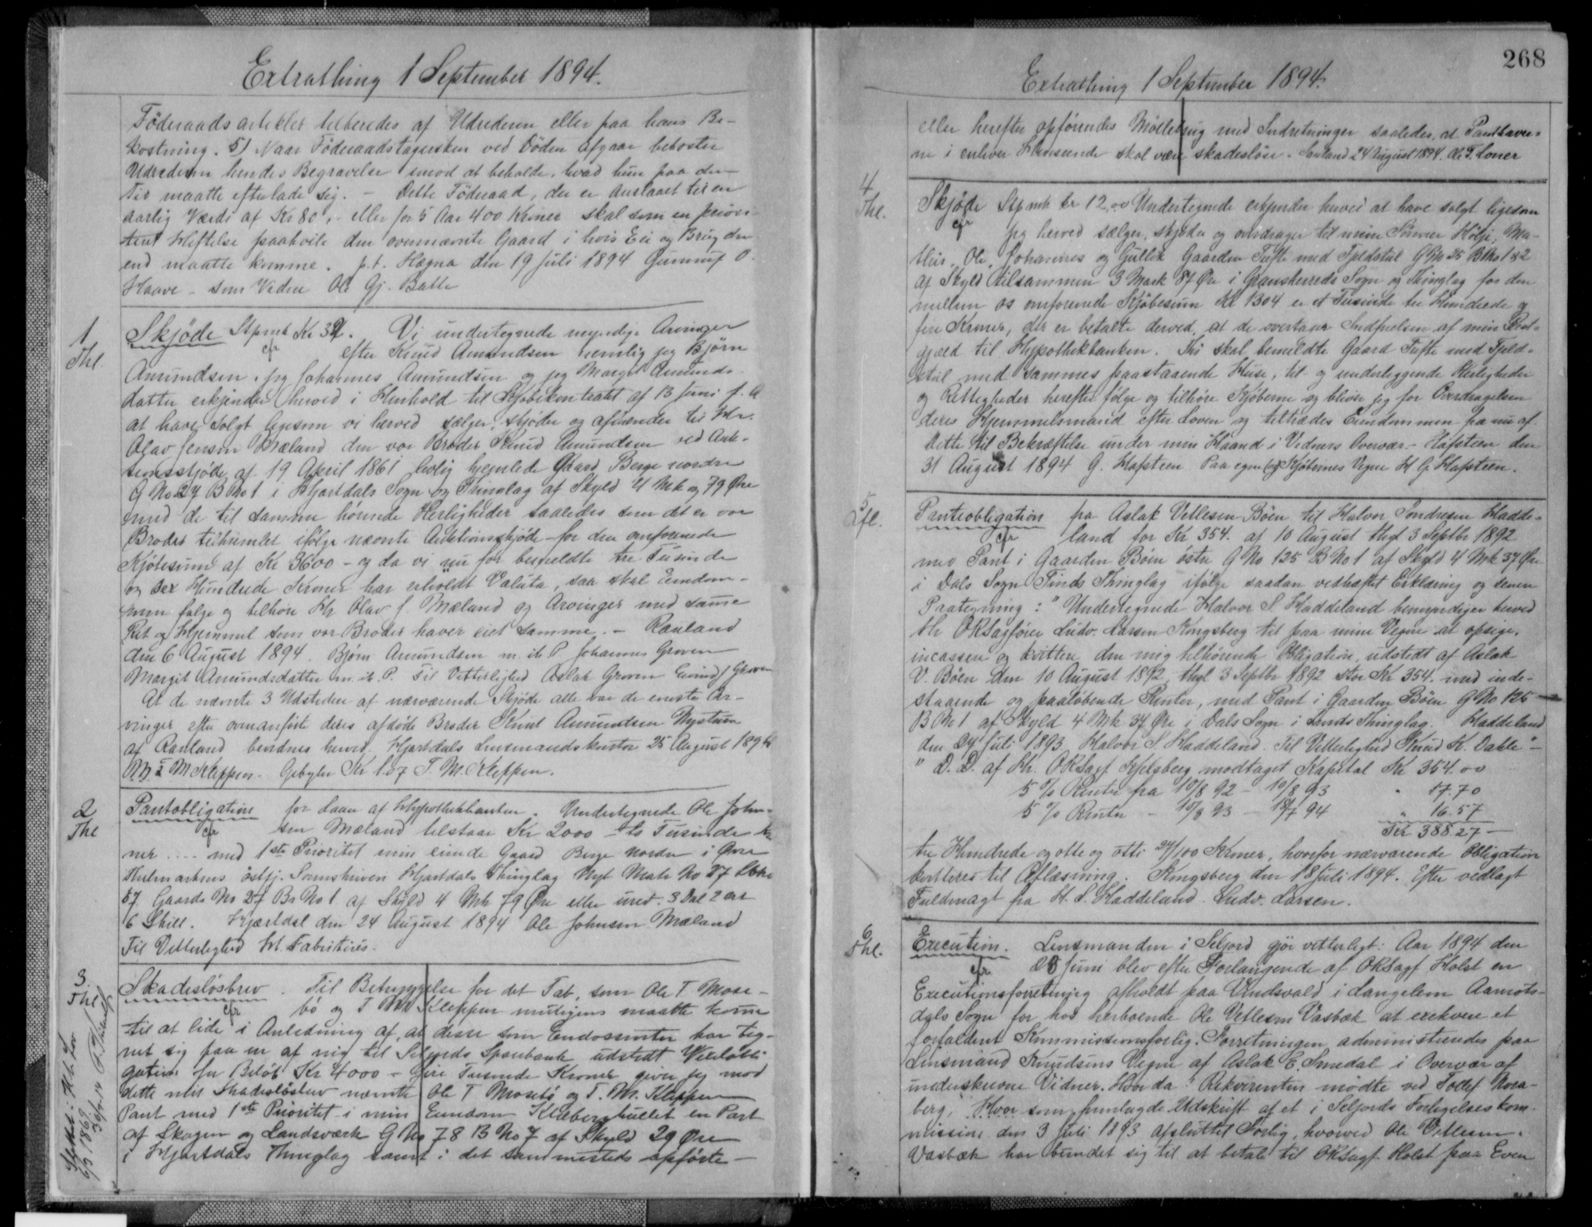 Extrathing 1 September 1894.
Föderaadsartikler tilberedes af Udrederen eller paa hans Be-
kostning. 5) Naar Föderaadstagersken ved Döden afgaar bekoster
Udrederen hendes Begravelse imod at beholde, hvad hun paa den
Tid maatte efterlade sig. - Dette Föderaad, der er anslaaet til en
aarlig Værdi af Kr 80,- eller for 5 Aar 400 Kroner skal som en priori-
teret Heftelse paahvile den ovennævnte Gaard i hvis Eie og Brug den
end maatte komme. p.t. Hægna den 19 Juli 1894 Gunnuf O.
Haave - som Vidne Ole Gj. Batta
1
Thl.
Skjöde Stpmk Kr 32. Vi undertegnede myndige Arvinger
cfr efter Knud Amundsen nemlig jeg Björn
Amundsen, jeg Johannes Amundsen og jeg Margit Amunds-
datter erkjender herved i Henhold til Kjöbekontrakt af 13 Juni f. A
at have solgt ligesom vi herved sælger, skjöder og afhænder til Hr.
Olav Jensen Mæland den vor Broder Knud Amundsen ved Auk-
tionsskjöde af 19 April 1861 lovlig hjemlede Gaard Berge nordre
G No 27 B No 1 i Hjartdals Sogn og Thinglag af Skyld 4 Mk og 79 Öre
med de til samme hörende Herligheder saaledes som det er vor
Broder tilhjemlet ifölge nævnte Auktionsskjöde for den omforenede
Kjöbesum af Kr 3600 - og da vi nu for bemeldte tre Tusinde
og sex Hundrede Kroner har erholdt Valuta, saa skal Eiendom-
men fölge og tilhöre Hr Olav J. Mæland og Arvinger med samme
Ret og Hjemmel som vor Broder haver eiet samme. - Rauland
den 6 August 1894. Björn Amundsen m. it. P. Johannes Groven
Margit Amundsdatter m. it. P. Til Vitterlighed Aslak Groven Eivind J Groven
At de nævnte 3 Udstedere af nærværende Skjöde alle var de eneste Ar-
vinger efter ovenanförte deres afdöde Broder Knud Amundsen Nystuen
af Rauland bevidnes herved. Hjartdals Lensmandskontor 25 August 1894
T M Kleppen. Gebyler Kr 1.07 T. M. Kleppen.
2
Thl
Pantobligation for Laan af Hypothekbanken. Undertegnede Ole John-
cfr sen Mæland tilstaar Kr 2000 to Tusinde Kro
ner .... med 1ste Prioritet min eiende Gaard Berge nordre i Övre
Thelemarkens östfj. Sorenskriveri Hjartdals Thinglag Nyt Matr No 27 Löbe
57 Gaards No 27 Br No 1 af Skyld 4 Mk 79 Öre eller urev. 3 Dal 2 ort
6 Skill. Hjartdal den 24 August 1894 Ole Johnsen Mæland
Til Vitterlighed H. Fabritius.
3.
Thl.
Skadeslösbrev. Til Betryggelse for det Tab, som Ole T Mose-
cfr bö og T Mk Kleppen muligens maatte komme
til at lide i Anledning af, at disse som Endossenter har teg-
net sig paa en af mig til Seljords Sparebank udstedt Vexelobli-
gation for Belöb Kr 4000 - fire Tusinde Kroner giver jeg med
dette mit Skadeslösbrev nævnte Ole T Mosebö og T. Mk. Kleppen
Pant med 1ste Prioritet i min Eiendom Kleberghullet en Part
af Skogen og Landsværk G No 78 B No 7 af Skyld 29 Öre
i Hjartdals Thinglag samt i det sammesteds opförte -
268
Extrathing 1 September 1894.
eller herefter opförendes Möllebrug med Indretninger saaledes, at Panthaver-
ne i enhver Henseende skal være skadeslöse. Sauland 24 August 1894. Ole T. Loner
4.
Thl.
Skjöde Stpmk Kr 12.00 Undertegnede erkjender herved at have solgt ligesom
cfr jeg herved sælger, skjöder og overdrager til mine Sönner Höljе, Ma-
this, Ole, Johannes og Gullik Gaarden Tufte med Fjeldstöl G No 25 B No 1 & 2
af Skyld tilsammen 3 Mark 87 Öre i Gransherreds Sogn og Thinglag for den
mellem os omforenede Kjöbesum Kr 1304 er et Tusinde tre Hundrede og
fire Kroner, der er betalte derved, at de overtager Indfrielsen af min Pant-
gjæld til Hypothekbanken. Thi skal bemeldte Gaard Tufte med Fjeld-
stöl med sammes paastaaende Huse, til og underliggende Herligheder
og Rettigheder herefter fölge og tilhöre Kjöberne og bliver jeg for Overdragelsen
deres Hjemmelsmand efter Loven og tiltrædes Eiendommen fra nu af.
Dette til Bekræftelse under min Haand i Vidners Overvær. Hafsteen den
31 August 1894 G. Hafsteen Paa egne og Kjöbernes Vegne H G Hafsteen.
5
Afl.
Pantobligation fra Aslak Vetlesen Böen til Halvor Sondresen Hadde-
cfr land for Kr 354. af 10 August thgl 3 Septbr 1892
med Pant i Gaarden Böen östre G No 125 B No 1 af Skyld 4 Mrk 37 Öre
i Dals Sogn Tinds Thinglag ifölge saadan vedhæftet Erklæring og senere
Paategning: "Undertegnede Halvor S. Haddeland bemyndiger herved
Hr ORSagförer Ludv. Larsen Kongsberg til paa mine Vegne at opsige,
incassere og kvittere den mig tilhörende Obligation, udstedt af Aslak
V. Böen den 10 August 1892, thgl 3 Septbr 1892 stor Kr 354. med inde-
staaende og paalöbende Renter, med Pant i Gaarden Böen G No 125
B No 1 af Skyld 4 Mrk 37 Öre i Dals Sogn i Tinds Thinglag. Haddeland
den 24 Juli 1893. Halvor S. Haddeland. Til Vitterlighed Knud K. Dahle" -
" D. D. af Hr. ORSagf. Kjelsberg modtaget Kapital Kr 354.00
5 % Rente fra 10/8 92 - 10/8 93 " 17.70
5 % Renter - 10/8 93 - 18/7 94 " 16.57
Kr 388.27 -
tre Hundrede og otte og otti 27/100 Kroner, hvorfor nærværende Obligation
kvitteres til Aflæsning. Kongsberg den 18 Juli 1894. Efter vedlagt
Fuldmagt fra H. S. Haddeland. Ludv. Larsen.
6
Thl.
Execution. Lensmanden i Seljord gjör vitterligt: Aar 1894 den
cfr 28 Juni blev efter Forlangende af ORSagf Holst en
Executionsforretning afholdt paa Vindsvald i Langelem Aamots-
dals Sogn for hos herboende Ole Vetlesen Vasbæk at exekvere et
forfaldent Kommissionsforlig. Forretningen administreredes paa
Lensmand Knudsens Vegne af Aslak E. Smedal i Overvær af
underskrevne Vidner. Hvor da: Rekvirenten mödte ved Tollef Nora-
berg, Hvor som fremlagde Udskrift af et i Seljords Forligelseskom-
mission den 3 Juli 1893 afsluttet Forlig, hvorved Ole Vetlesen
Vasbæk har bundet sig til at betale til ORSagf Holst paa Even